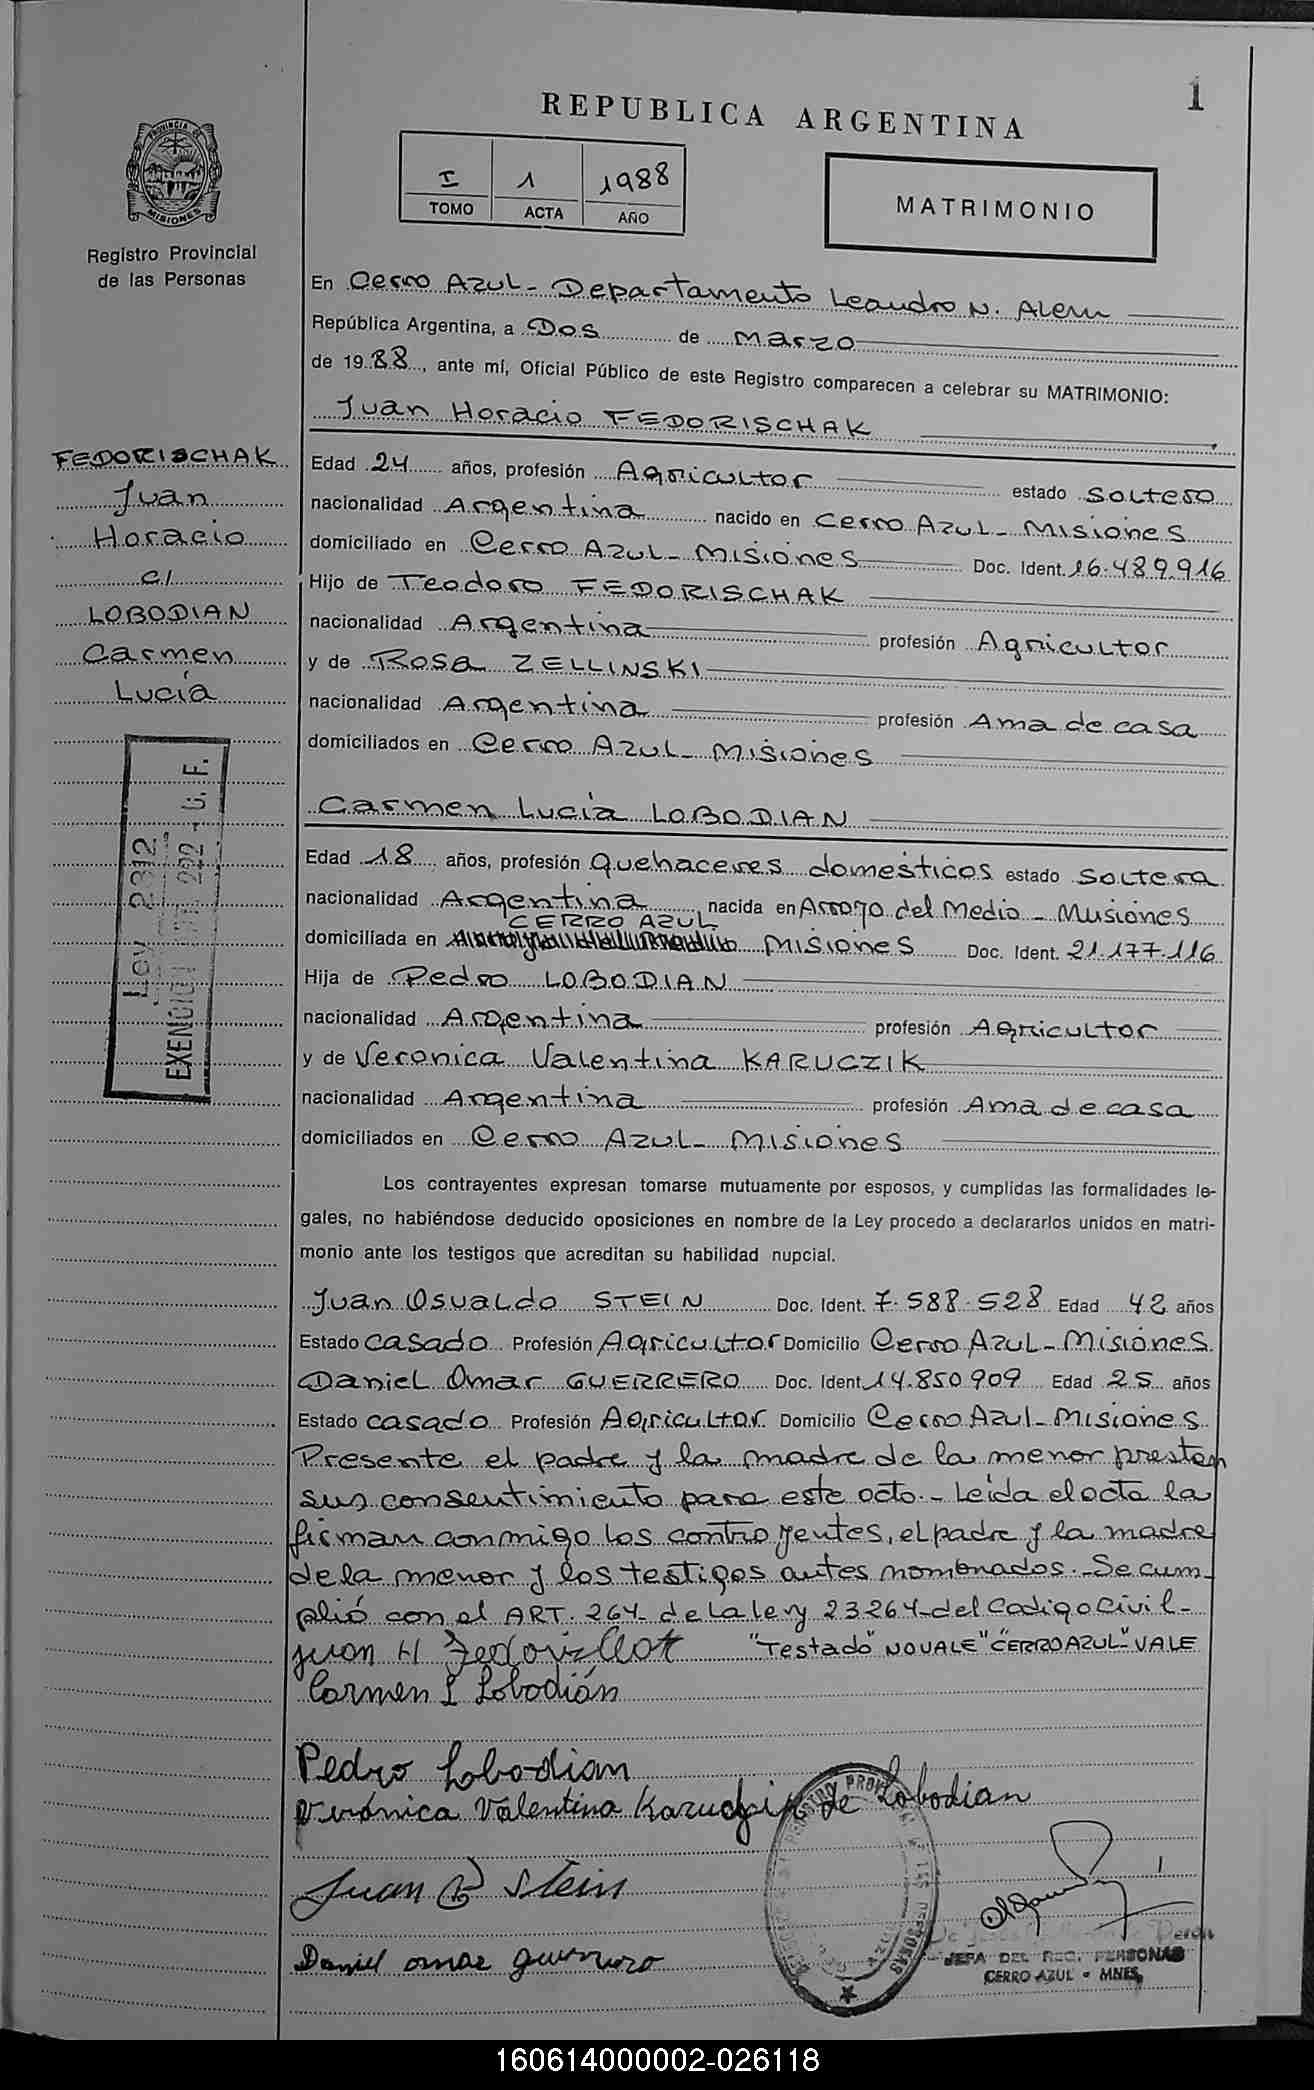 1
REPUBLICA ARGENTINA
I 1 1988
TOMO ACTA AÑO
MATRIMONIO
PROVINCIA DE
MISIONES
Registro Provincial
de las Personas
En Cerro AZUL - Departamento Leandro N. Alem
República Argentina, a Dos de Marzo
de 19 88, ante mí, Oficial Público de este Registro comparecen a celebrar su MATRIMONIO:
Juan Horacio FEDORISCHAK
FEDORISCHAK
Juan
Horacio
c/
LOBODIAN
Carmen
Lucía
Edad 24 años, profesión Agricultor estado soltero
nacionalidad Argentina nacido en Cerro Azul - Misiones
domiciliado en Cerro Azul - Misiones Doc. Ident. 16.489.916
Hijo de Teodoro FEDORISCHAK
nacionalidad Argentina profesión Agricultor
y de Rosa ZELLINSKI
nacionalidad Argentina profesión Ama de casa
domiciliados en Cerro Azul - Misiones
Carmen Lucía LOBODIAN
Edad 18 años, profesión quehaceres domésticos estado soltera
nacionalidad Argentina nacida en Arroyo del Medio - Misiones
CERRO AZUL
domiciliada en Misiones Doc. Ident. 21.177.116
Hija de Pedro LOBODIAN
nacionalidad Argentina profesión Agricultor
y de Veronica Valentina KARUCZIK
nacionalidad Argentina profesión Ama de casa
domiciliados en Cerro Azul - Misiones
Ley 2312
EXENCION 222 - U. F.
Los contrayentes expresan tomarse mutuamente por esposos, y cumplidas las formalidades le-
gales, no habiéndose deducido oposiciones en nombre de la Ley procedo a declararlos unidos en matri-
monio ante los testigos que acreditan su habilidad nupcial.
Juan Osvaldo STEIN Doc. Ident. 7.588.528 Edad 42 años
Estado casado Profesión Agricultor Domicilio Cerro Azul - Misiones
Daniel Omar GUERRERO Doc. Ident. 14.850909 Edad 25 años
Estado casado Profesión Agricultor Domicilio Cerro Azul - Misiones
Presente el padre y la madre de la menor prestan
sus consentimiento para este acto.- Leída el acta la
firman conmigo los contrayentes, el padre y la madre
de la menor y los testigos antes nombrados.- Se cum-
plió con el ART. 264 - de la ley 23264 - del Codigo Civil -
Juan H "Testado" NO VALE "CERRO AZUL" - VALE
Carmen L Lobodián
Pedro Lobodian
Verónica Valentina de Lobodian
Juan O Stein
Daniel omar guerrero
REGISTRO PROVINCIAL DE LAS PERSONAS
JEFA DEL REG. PERSONAS
CERRO AZUL - MNES.
160614000002-026118